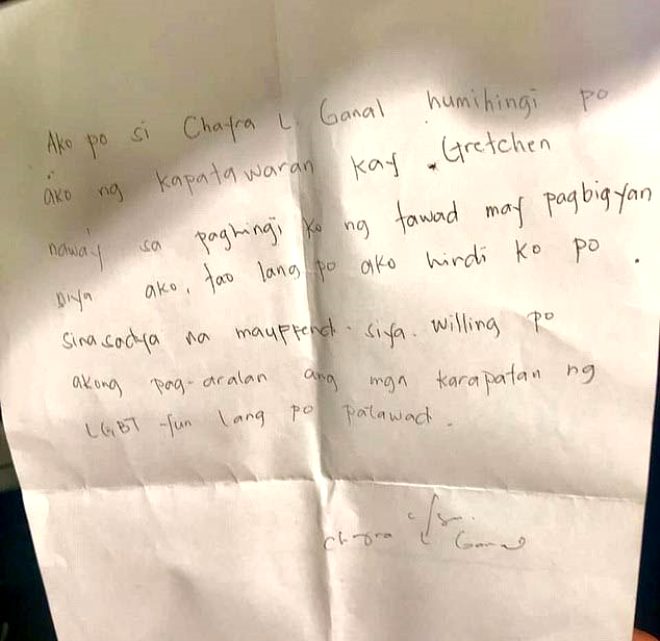 Ako po si Chayra L. Ganal humihingi po
ako ng kapatawaran kay Gretchen
naway sa paghingi ko ng tawad may pagbigyan
niya ako, tao lang po ako hindi ko po
sinasadya na mauffend siya. willing po
akong pag-aralan ang mga karapatan ng
LGBT -fun lang po patawad.
Chayra L Ganal